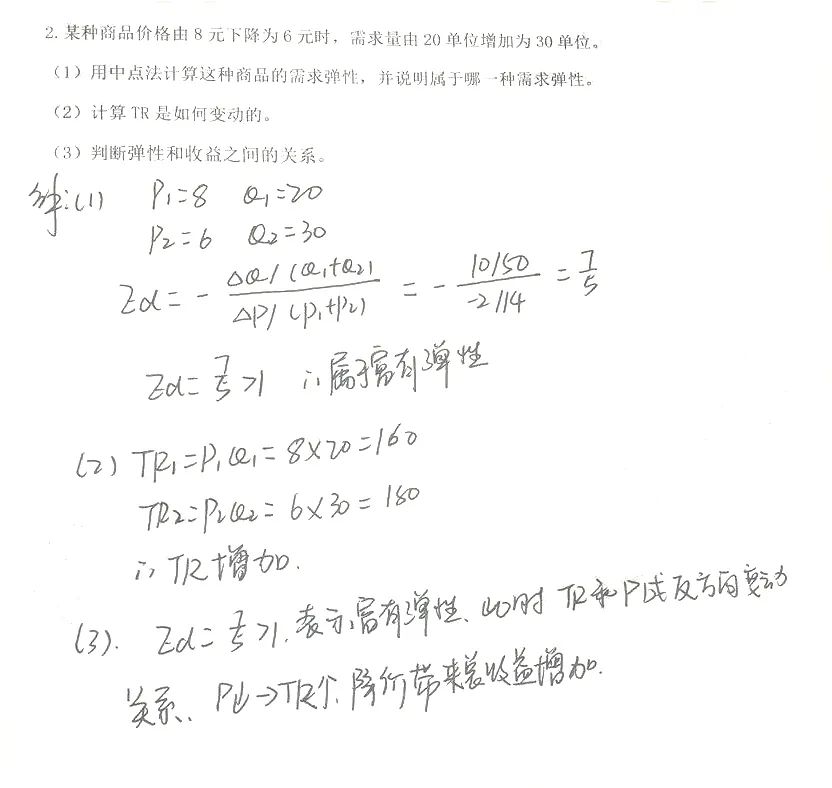 2. 某种商品价格由 8 元下降为 6 元时，需求量由 20 单位增加为 30 单位。
（1）用中点法计算这种商品的需求弹性，并说明属于哪一种需求弹性。
（2）计算 TR 是如何变动的。
（3）判断弹性和收益之间的关系。
解:(1) P₁=8 Q₁=20
P₂=6 Q₂=30
Ed = - ΔQ/(Q₁+Q₂) / ΔP/(P₁+P₂) = - 10/50 / -2/14 = 7/5
Ed= 7/5 >1 ∴属于富有弹性
(2) TR₁=P₁Q₁=8×20=160
TR₂=P₂Q₂=6×30=180
∴ TR增加.
(3). Ed= 7/5 >1. 表示富有弹性、此时 TR和P成反方向变动
关系、P↓→TR↑. 降价带来总收益增加.